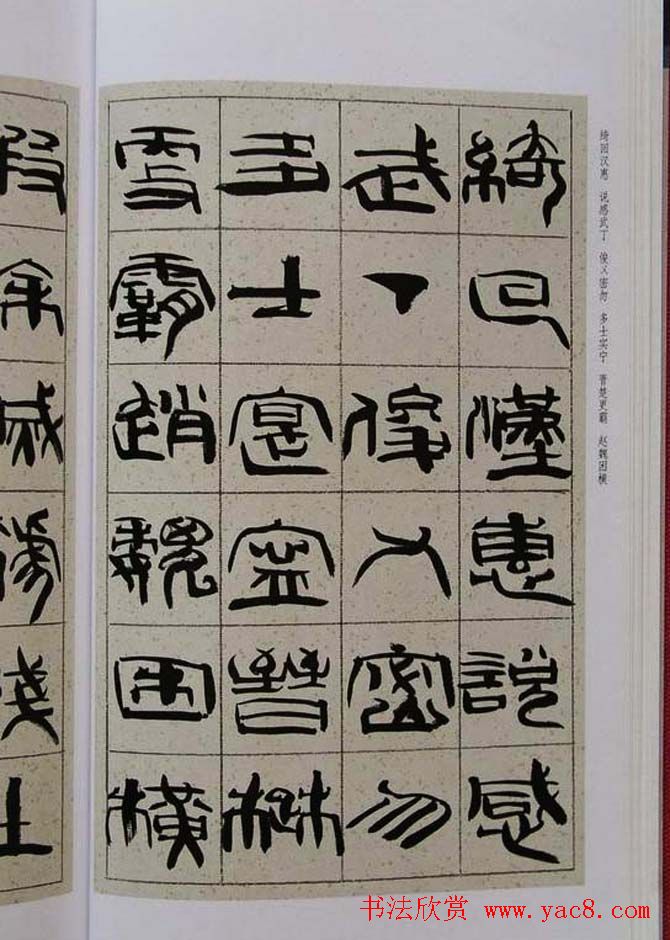 绮回汉惠 说感武丁 俊乂密勿 多士实宁 晋楚更霸 赵魏困横
綺回漢惠說感
武丁俊乂密勿
多士寔寧晉楚
更霸趙魏困橫
书法欣赏 www.yac8.com